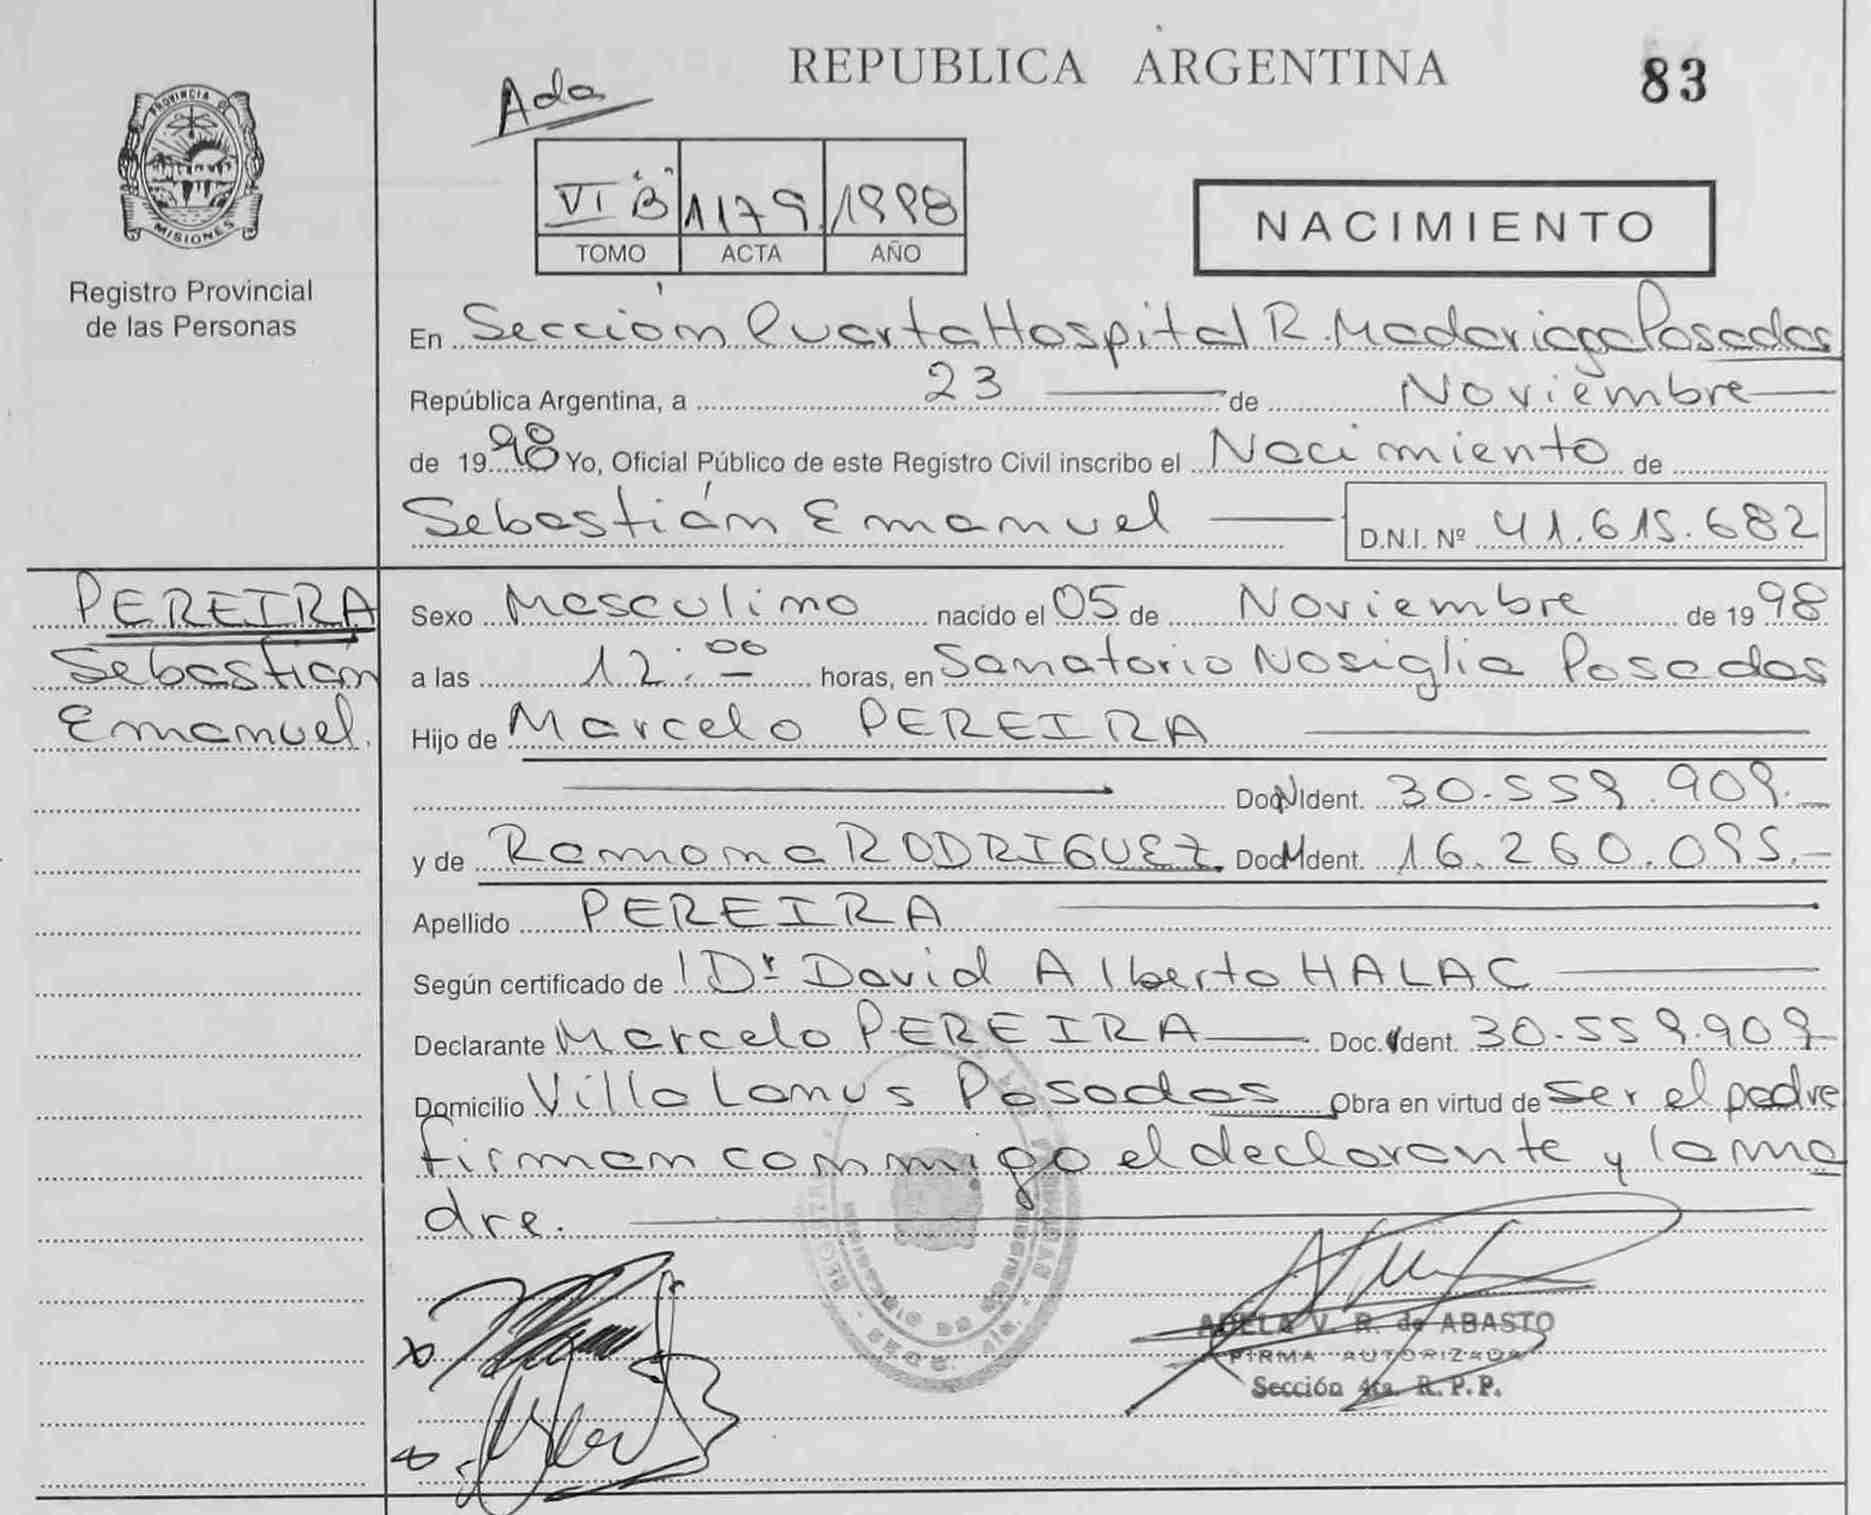 REPUBLICA ARGENTINA
83
Ada
PROVINCIA DE
MISIONES
Registro Provincial
de las Personas
VI "B" 1179 1998
TOMO ACTA AÑO
NACIMIENTO
En Sección Cuarta Hospital R. Madariaga Posadas
República Argentina, a 23 de Noviembre
de 1998 Yo, Oficial Público de este Registro Civil inscribo el Nacimiento de
Sebastián Emanuel D.N.I. Nº 41.615.682
PEREIRA
Sebastián
Emanuel.
Sexo Masculino nacido el 05 de Noviembre de 1998
a las 12:00 horas, en Sanatorio Nosiglia Posadas
Hijo de Marcelo PEREIRA
Doc. N Ident. 30.559.909.
y de Ramona RODRIGUEZ. Doc. Ident. 16.260.095.
Apellido PEREIRA
Según certificado de Dr David Alberto HALAC
Declarante Marcelo PEREIRA Doc. Ident. 30.559.909
Domicilio Villa Lanus Posadas Obra en virtud de ser el padre
firman conmigo el declarante y la ma
dre.
ADELA V. R. de ABASTO
FIRMA AUTORIZADA
Sección 4ta. R.P.P.